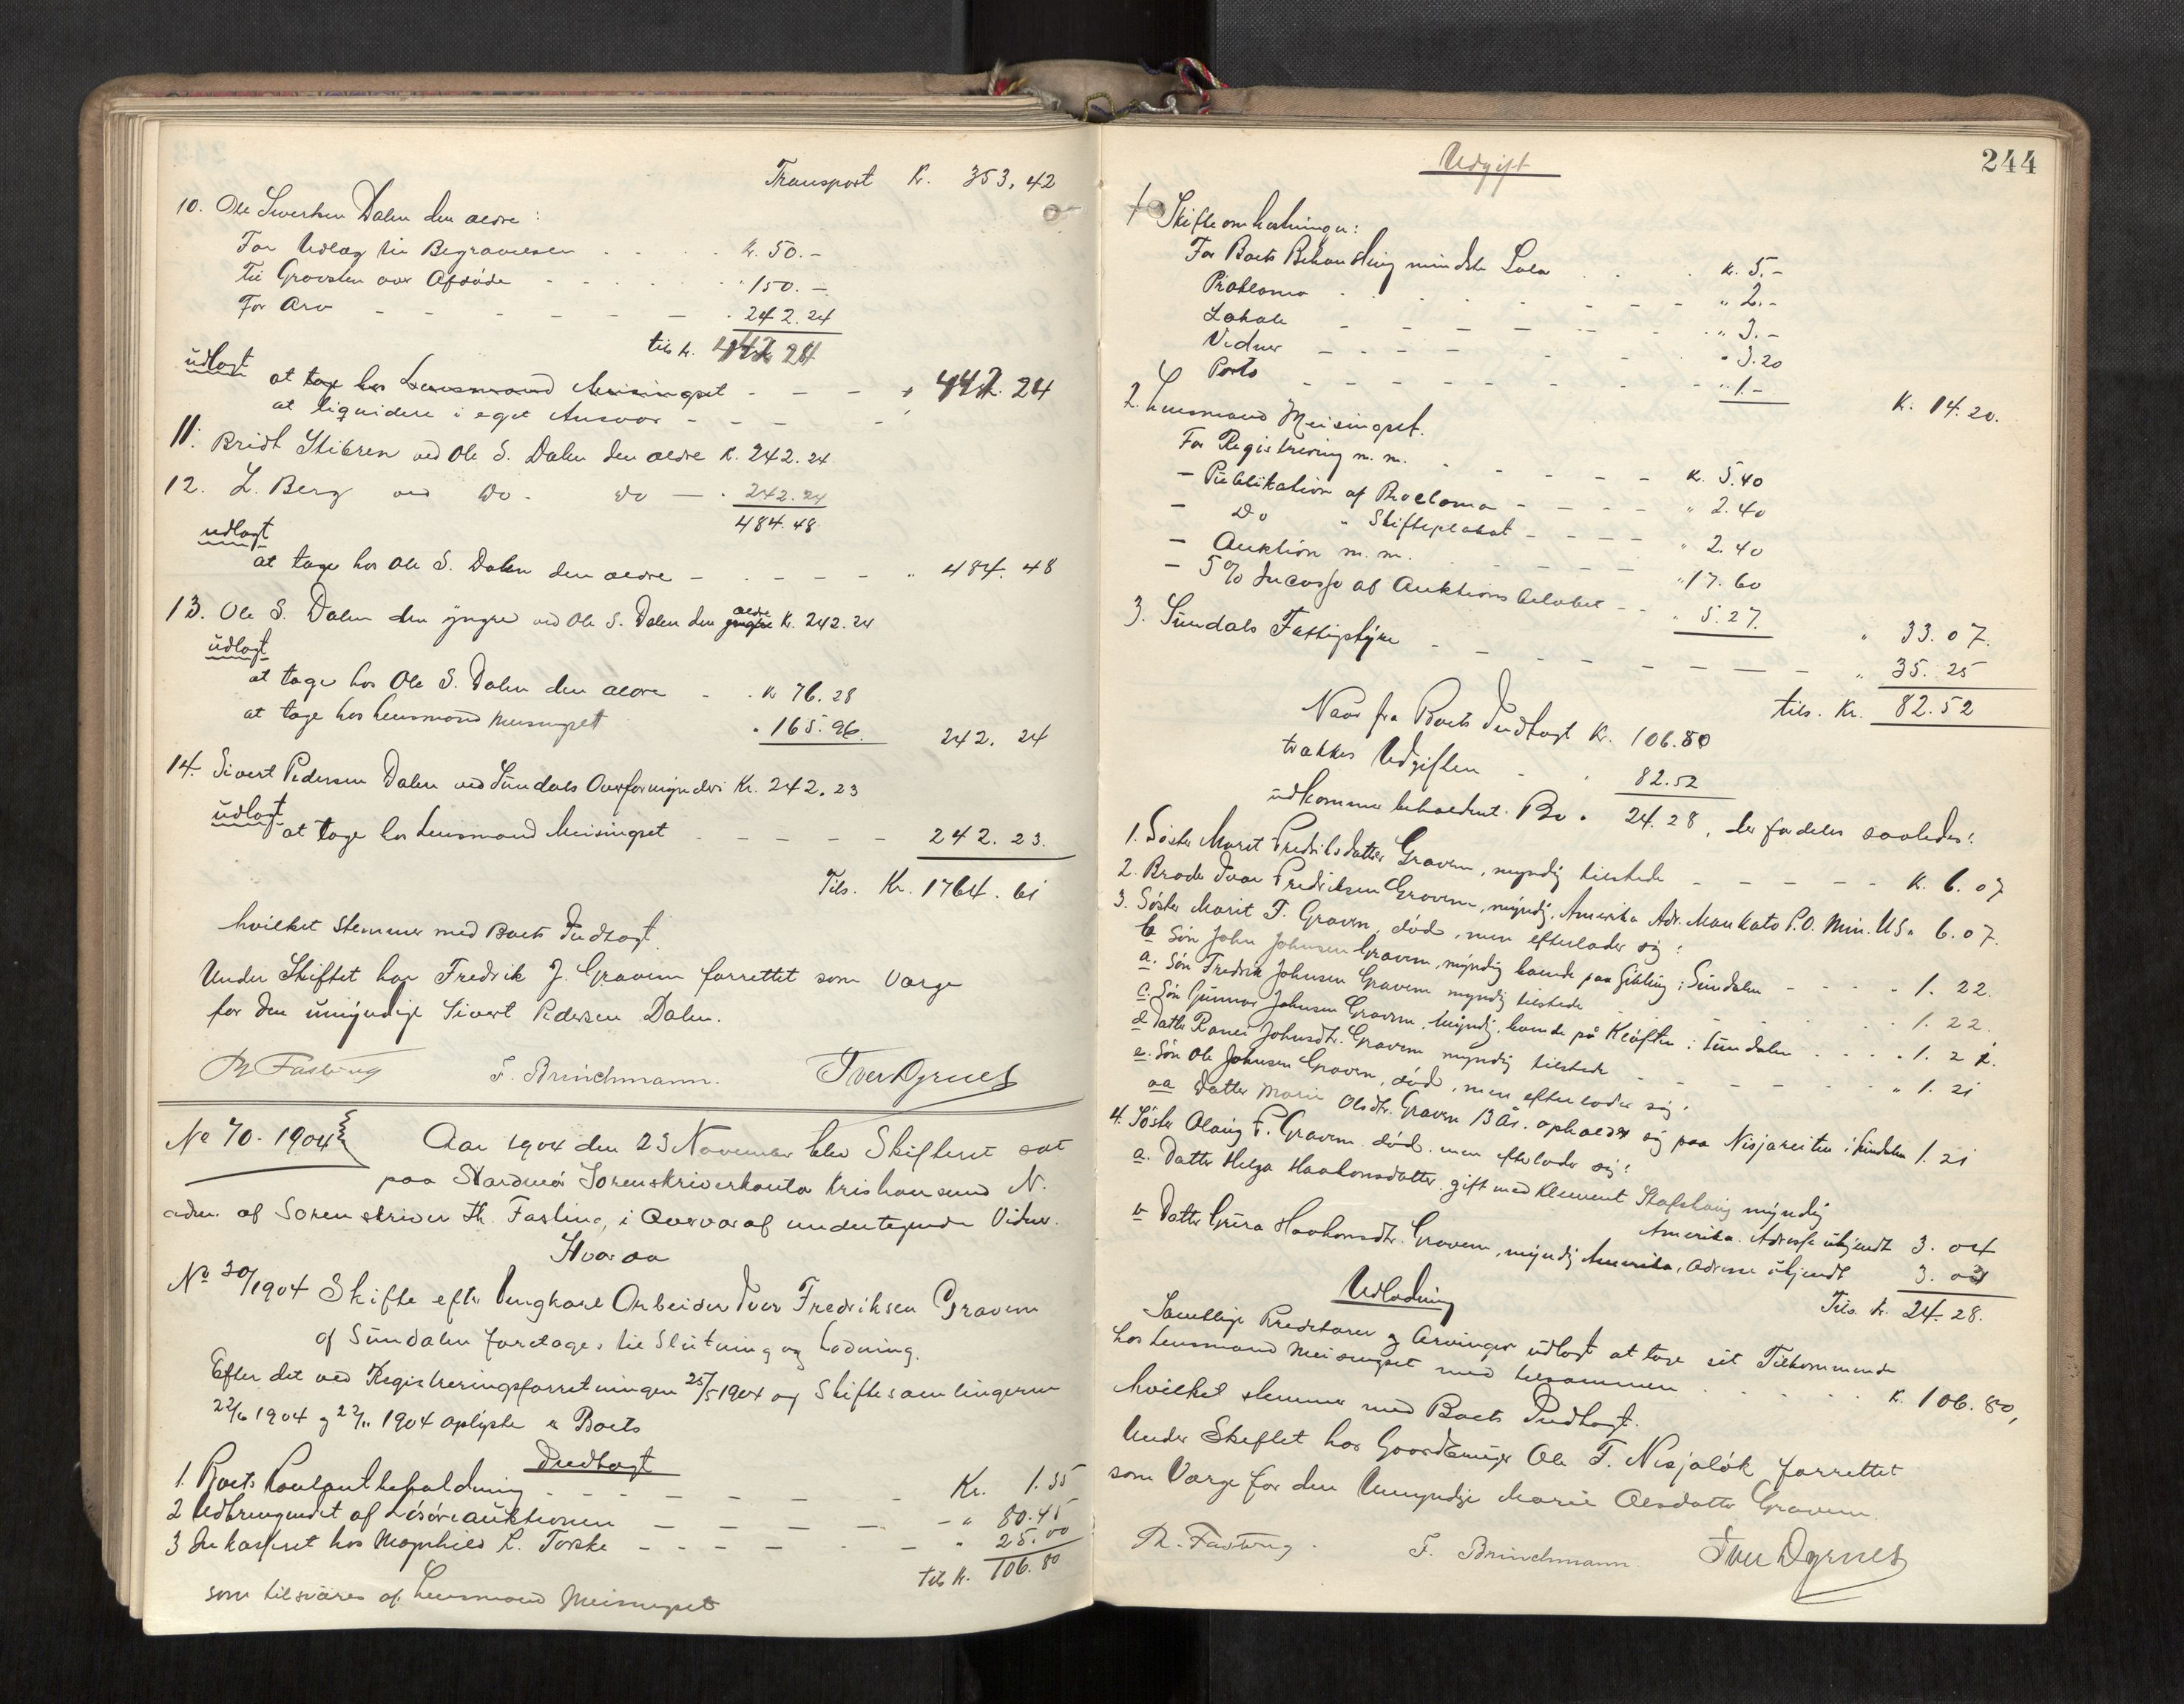 Transport K. 353,42
10. Ole Sivertsen Dalen den ældre:
For Udlæg til Begravelsen . . . . K. 50.-
Til Gravsten over Afdøde - - - - " 150.-
For Arv - - - - - - . 242.24
tils k. 442 24
udlagt
at tage hos Lensmand Meisingset - - - " 442. 24
at liquidere i eget Ansvar - - - -
11. Bridt Stibren ved Ole S. Dalen den ældre K. 242.24
12. L. Berg ved Do. Do — . 242.24
484.48
udlagt
at tage hos Ole S. Dalen den ældre - - - - - " 484.48
13. Ole S. Dalen den yngre ved Ole S. Dalen den yngre ældre K. 242.24
udlagt
at tage hos Ole S. Dalen den ældre - . K 76.28
at tage hos Lensmand Meisingset . 165.96. 242. 24
14. Sivert Pedersen Dalen ved Sundals Overformynderi Kr. 242.23
udlagt
at tage hos Lensmand Meisingset - - - - 242. 23.
Tils. Kr. 1764. 61
hvilket stemmer med Boets Indtægt.
Under Skiftet har Fredrik J. Gravem forrettet som Værge
for den umyndige Sivert Pedersen Dalen.
Th Fasting F. Brinchmann. Iver Dyrnes
No 70. 1904 Aar 1904 den 23 November blev Skifteret sat
paa Nordmør Sorenskriverkontor Kristiansund N.
adm. af Sorenskriver Th. Fasting, i Overvær af undertegnede Vidner.
Hvor da
No 30/1904 Skifte efter Ungkarl Arbeider Iver Fredriksen Gravem
af Sundalen foretages til Slutning og Lodning.
Efter det ved Registreringsforretningen 25/5 1904 og Skiftesamlingerne
22/6 1904 og 22/11 1904 oplyste er Boets
Indtægt
1. Boets Kontantbeholdning - - - - - - Kr. 1.35
2 Udbringendet af Løsøreauktionen — — — — - " 80.45
3 Inkasseret hos Magnhild L. Torske - - - - - - " 25.00
tils K. 106.80
som tilsvares af Lensmand Meisingset
244
Udgift
1. Skifteomkostninger:
For Boets Behandling mindste Sats . . . K. 5.-
Proklama - - - - - - " 2.-
Lokale - - - - - - " 3.-
Vidner - - - - - - " 3.20
Porto - - - - - - " 1.- K. 14.20.
2. Lensmand Meisingset.
For Registrering m. m. - - - - - K. 5.40
- Publikation af Proclama - - - - " 2.40
- Do " Skifteplakat - - - - " 2.40
- Auktion m. m. - - - - " 17.60
- 5% Incasso af Auktionsbeløbet - - " 5.27. " 33.07.
3. Sundals Fattigstyre - - - - - - - - " 35.25
tils. Kr. 82.52
Naar fra Boets Indtægt K. 106.80
trækkes Udgiften - " 82.52
udkommer beholdent. Bo . 24.28, der fordeles saaledes:
1. Søster Marit Fredriksdatter Gravem, myndig tilstede - - - - - K. 6.07
2. Broder Ivar Fredriksen Gravem, myndig, Amerika Adr. Mankato P.O. Min. U.S. 6.07.
3. Søster Marit F. Gravem, død, men efterlader sig:
b Søn John Johnsen Gravem, myndig boende paa Gikling i Sundalen - - - - 1. 22.
a. Søn Fredrik Johnsen Gravem myndig tilstede - - - - 1. 22.
c. Søn Gunnar Johnsen Gravem, myndig, boende på Kløften i Sundalen . . . . 1. 21.
d Datter Ranei Johnsdtr. Gravem myndig tilstede - - - - - - " 1. 21
e. Søn Ole Johnsen Gravem, død, men efterlader sig:
aa Datter Marie Olsdtr. Gravem 13 År. opholder sig paa Nisjareiten i Sundalen 1. 21
4. Søster Olaug F. Gravem død, men efterlader sig:
a. Datter Helga Haakonsdatter gift med Klement myndig
Amerika. Adresse ukjendt 3. 04
b Datter Gura Haakonsdtr. Gravem, myndig Amerika, Adresse ukjendt 3. 03
Tils. K. 24.28.
Udlodning
Samtlige Kreditorer og Arvinger udlagt at tage sit Tilkommende
hos Lensmand Meisingset med tilsammen . . . . . K. 106.80,
hvilket stemmer med Boets Indtægt.
Under Skiftet har Gaardbruger Ole F. Nisjaløk forrettet
som Værge for den Umyndige Marie Olsdatter Gravem.
Th. Fasting. F. Brinchmann. Iver Dyrnes